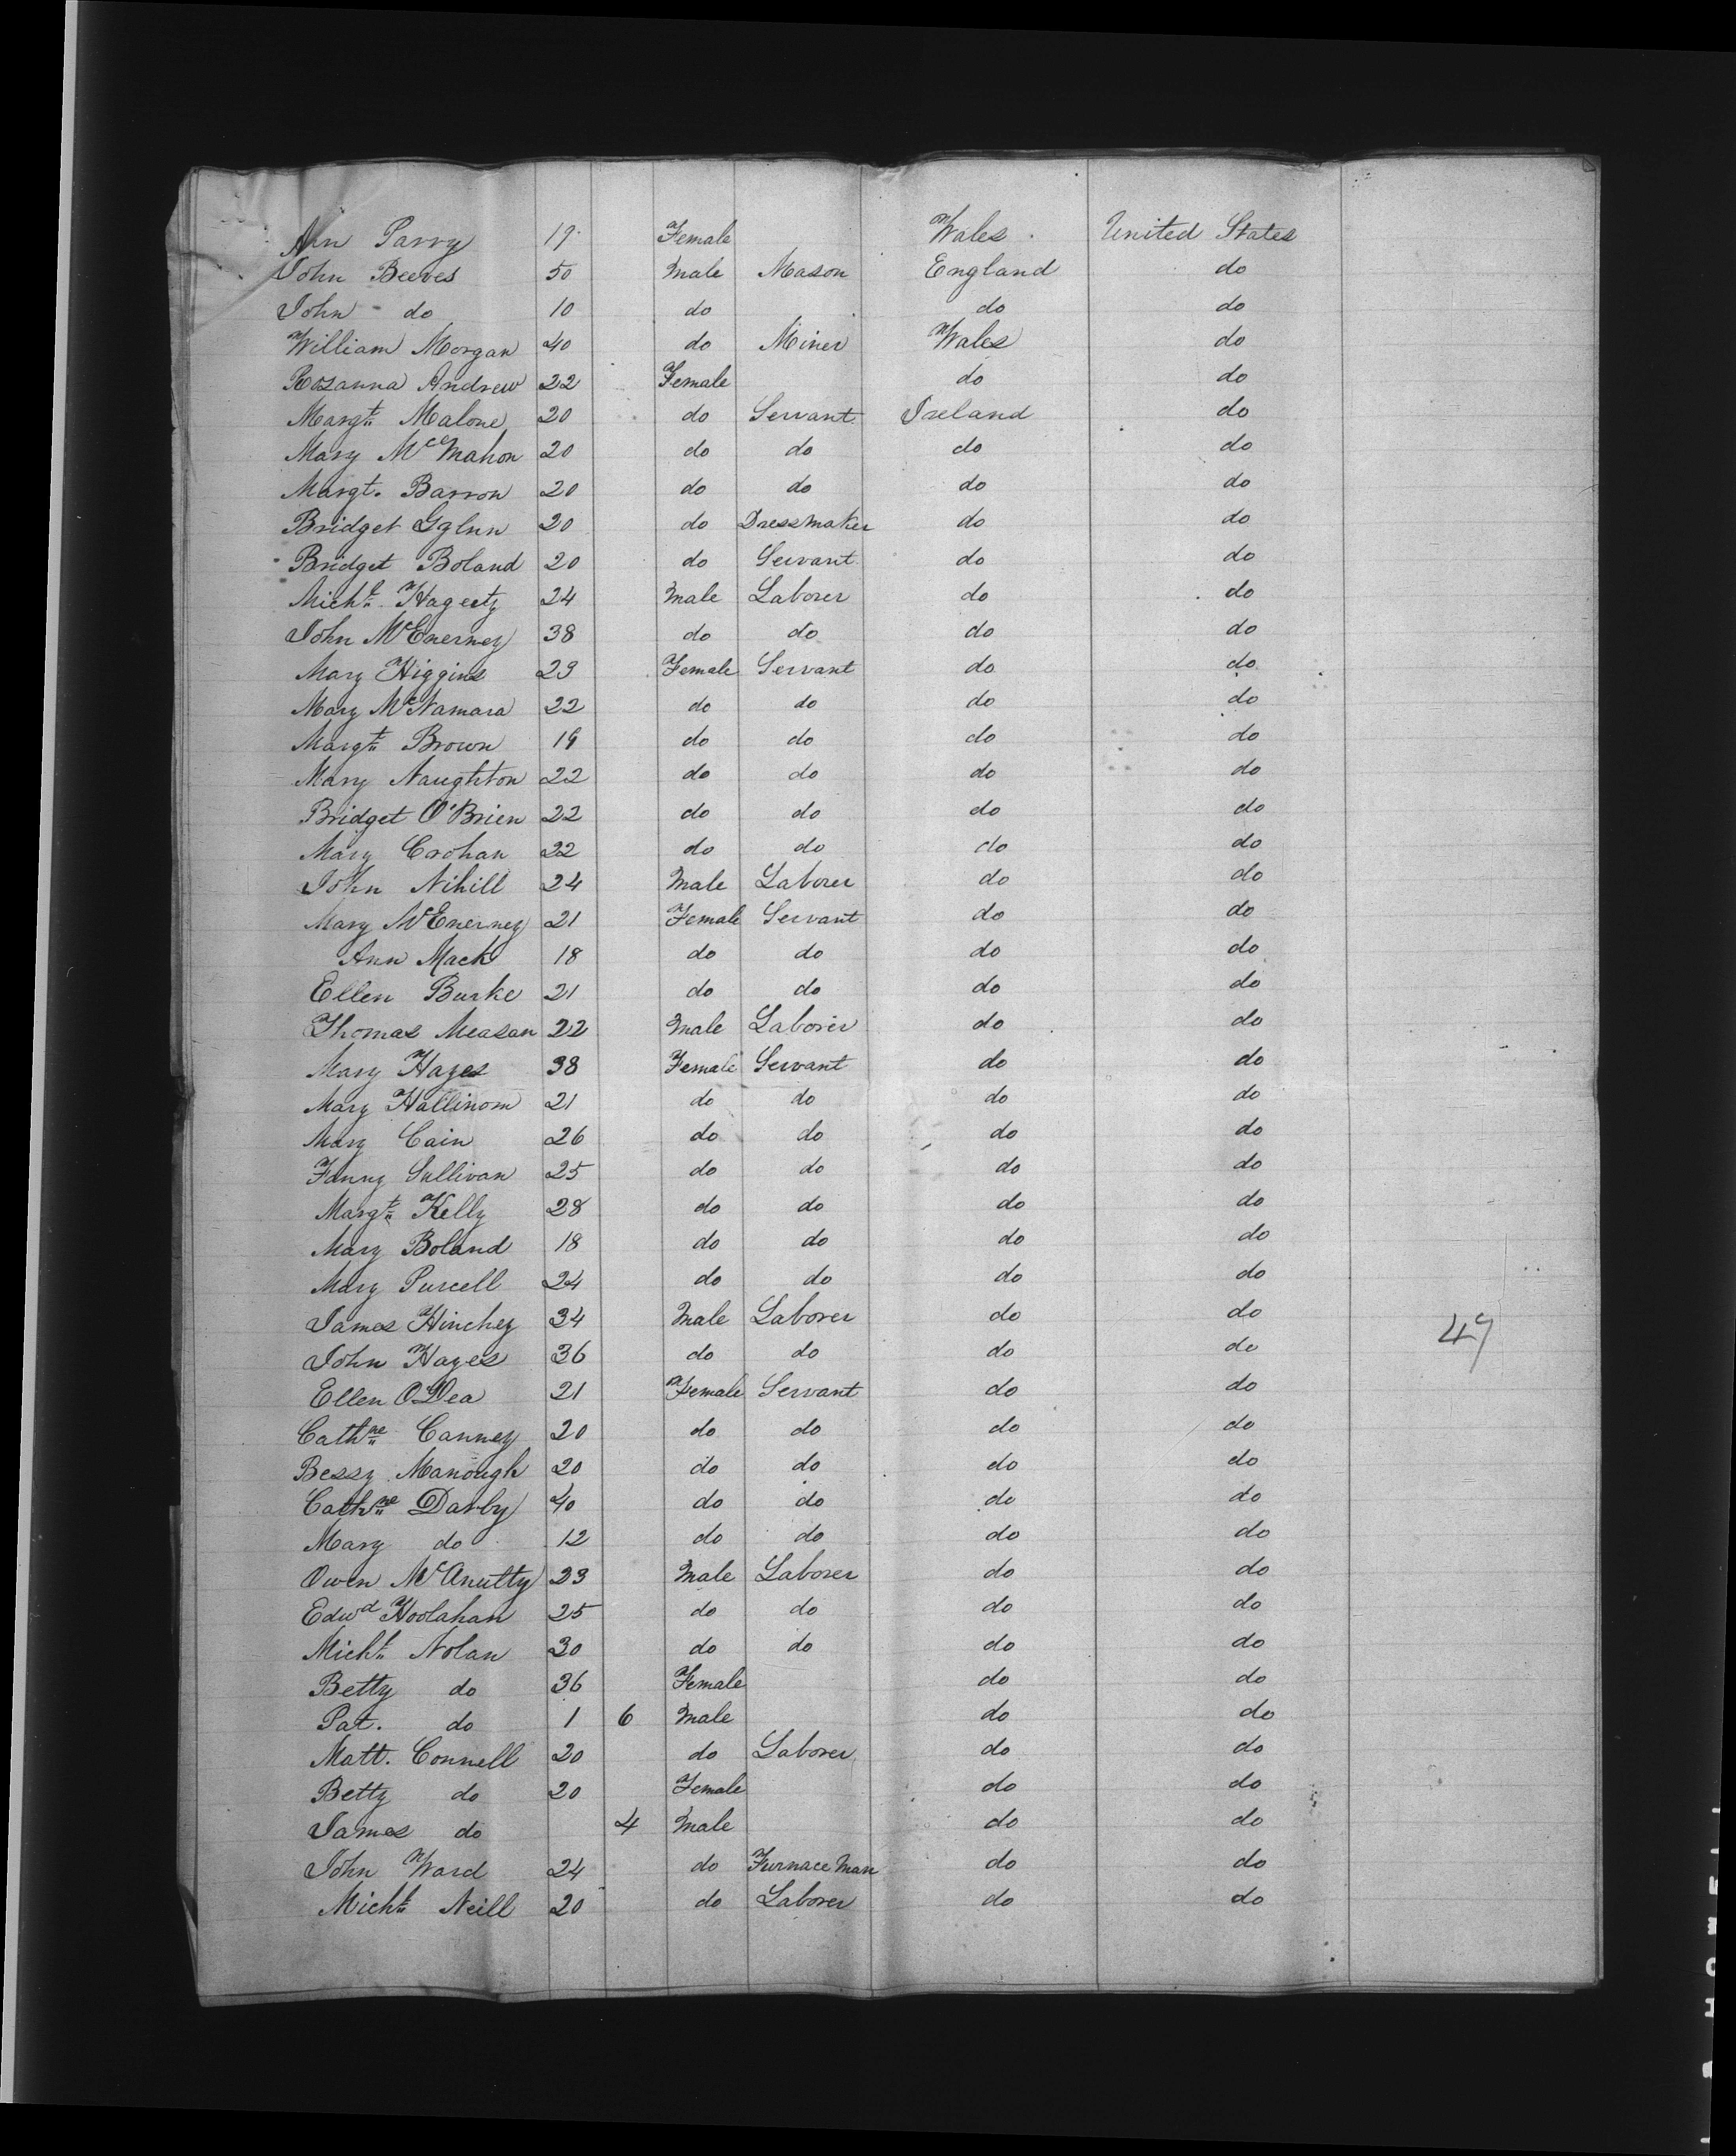 Ann Parry 19 Female Wales United States
John Beeves 50 Male Mason England do
John do 10 do do do
William Morgan 40 do Miner Wales do
Rosanna Andrew 22 Female do do
Margt. Malone 20 do Servant Ireland do
Mary McMahon 20 do do do do
Margt. Barron 20 do do do do
Bridget Gglnn 20 do Dressmaker do do
Bridget Boland 20 do Servant do do
Michl. Hagerty 24 Male Laborer do do
John McEnerney 38 do do do do
Mary Higgins 23 Female Servant do do
Mary McNamara 22 do do do do
Margt. Brown 19 do do do do
Mary Naughton 22 do do do do
Bridget O'Brien 22 do do do do
Mary Crohan 22 do do do do
John Nihill 24 Male Laborer do do
Mary McEnerney 21 Female Servant do do
Ann Mack 18 do do do do
Ellen Burke 21 do do do do
Thomas Measan 22 Male Laborer do do
Mary Hayes 38 Female Servant do do
Mary Hallinom 21 do do do do
Mary Cain 26 do do do do
Fanny Sullivan 25 do do do do
Margt. Kelly 28 do do do do
Mary Boland 18 do do do do
Mary Purcell 24 do do do do
James Hinchey 34 Male Laborer do do
47
John Hayes 36 do do do do
Ellen O'Dea 21 Female Servant do do
Cathne Canney 20 do do do do
Bessy Manough 20 do do do do
Cathne Darby 40 do do do do
Mary do 12 do do do do
Owen McAnutty 23 Male Laborer do do
Edwd Hoolahan 25 do do do do
Michl. Nolan 30 do do do do
Betty do 36 Female do do
Pat. do 1 6 Male do do
Matt. Connell 20 do Laborer do do
Betty do 20 Female do do
James do 4 Male do do
John Ward 24 do Furnace Man do do
Michl. Neill 20 do Laborer do do